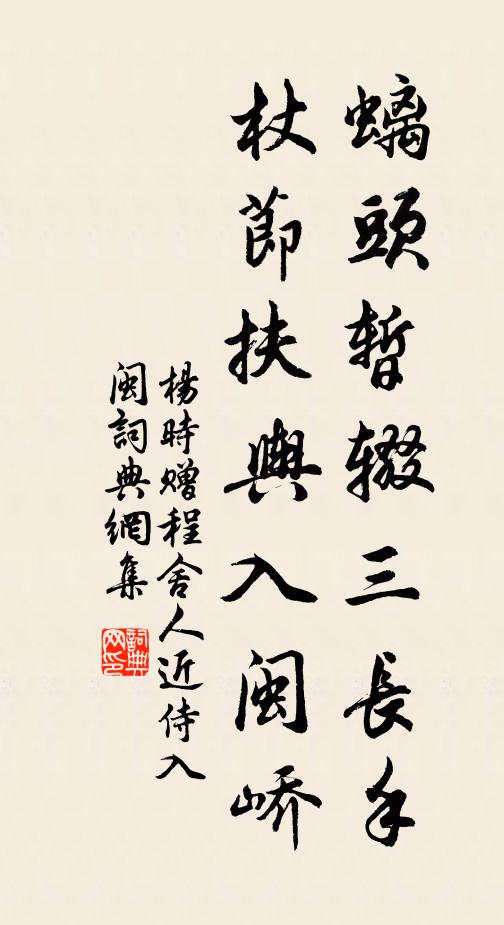 螭頭暫辍三長手
杖節扶輿入閩嶠
楊時赠程舍人近侍入
閩詞典網集
詞典网印